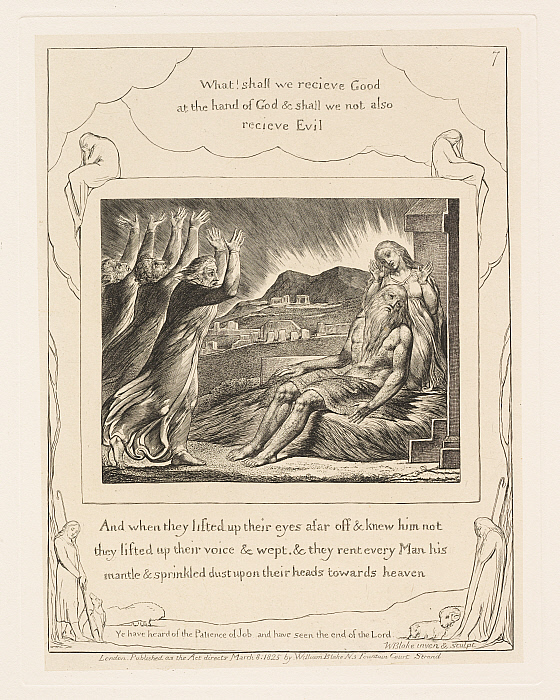 7
What! shall we recieve Good
at the hand of God & shall we not also
recieve Evil
And when they lifted up their eyes afar off & knew him not
they lifted up their voice & wept. & they rent every Man his
mantle & sprinkled dust upon their heads towards heaven
Ye have heard of the Patience of Job and have seen the end of the Lord
WBlake inven & sculpt
London. Published as the Act directs March 8: 1825 by William Blake N3 Fountain Court Strand